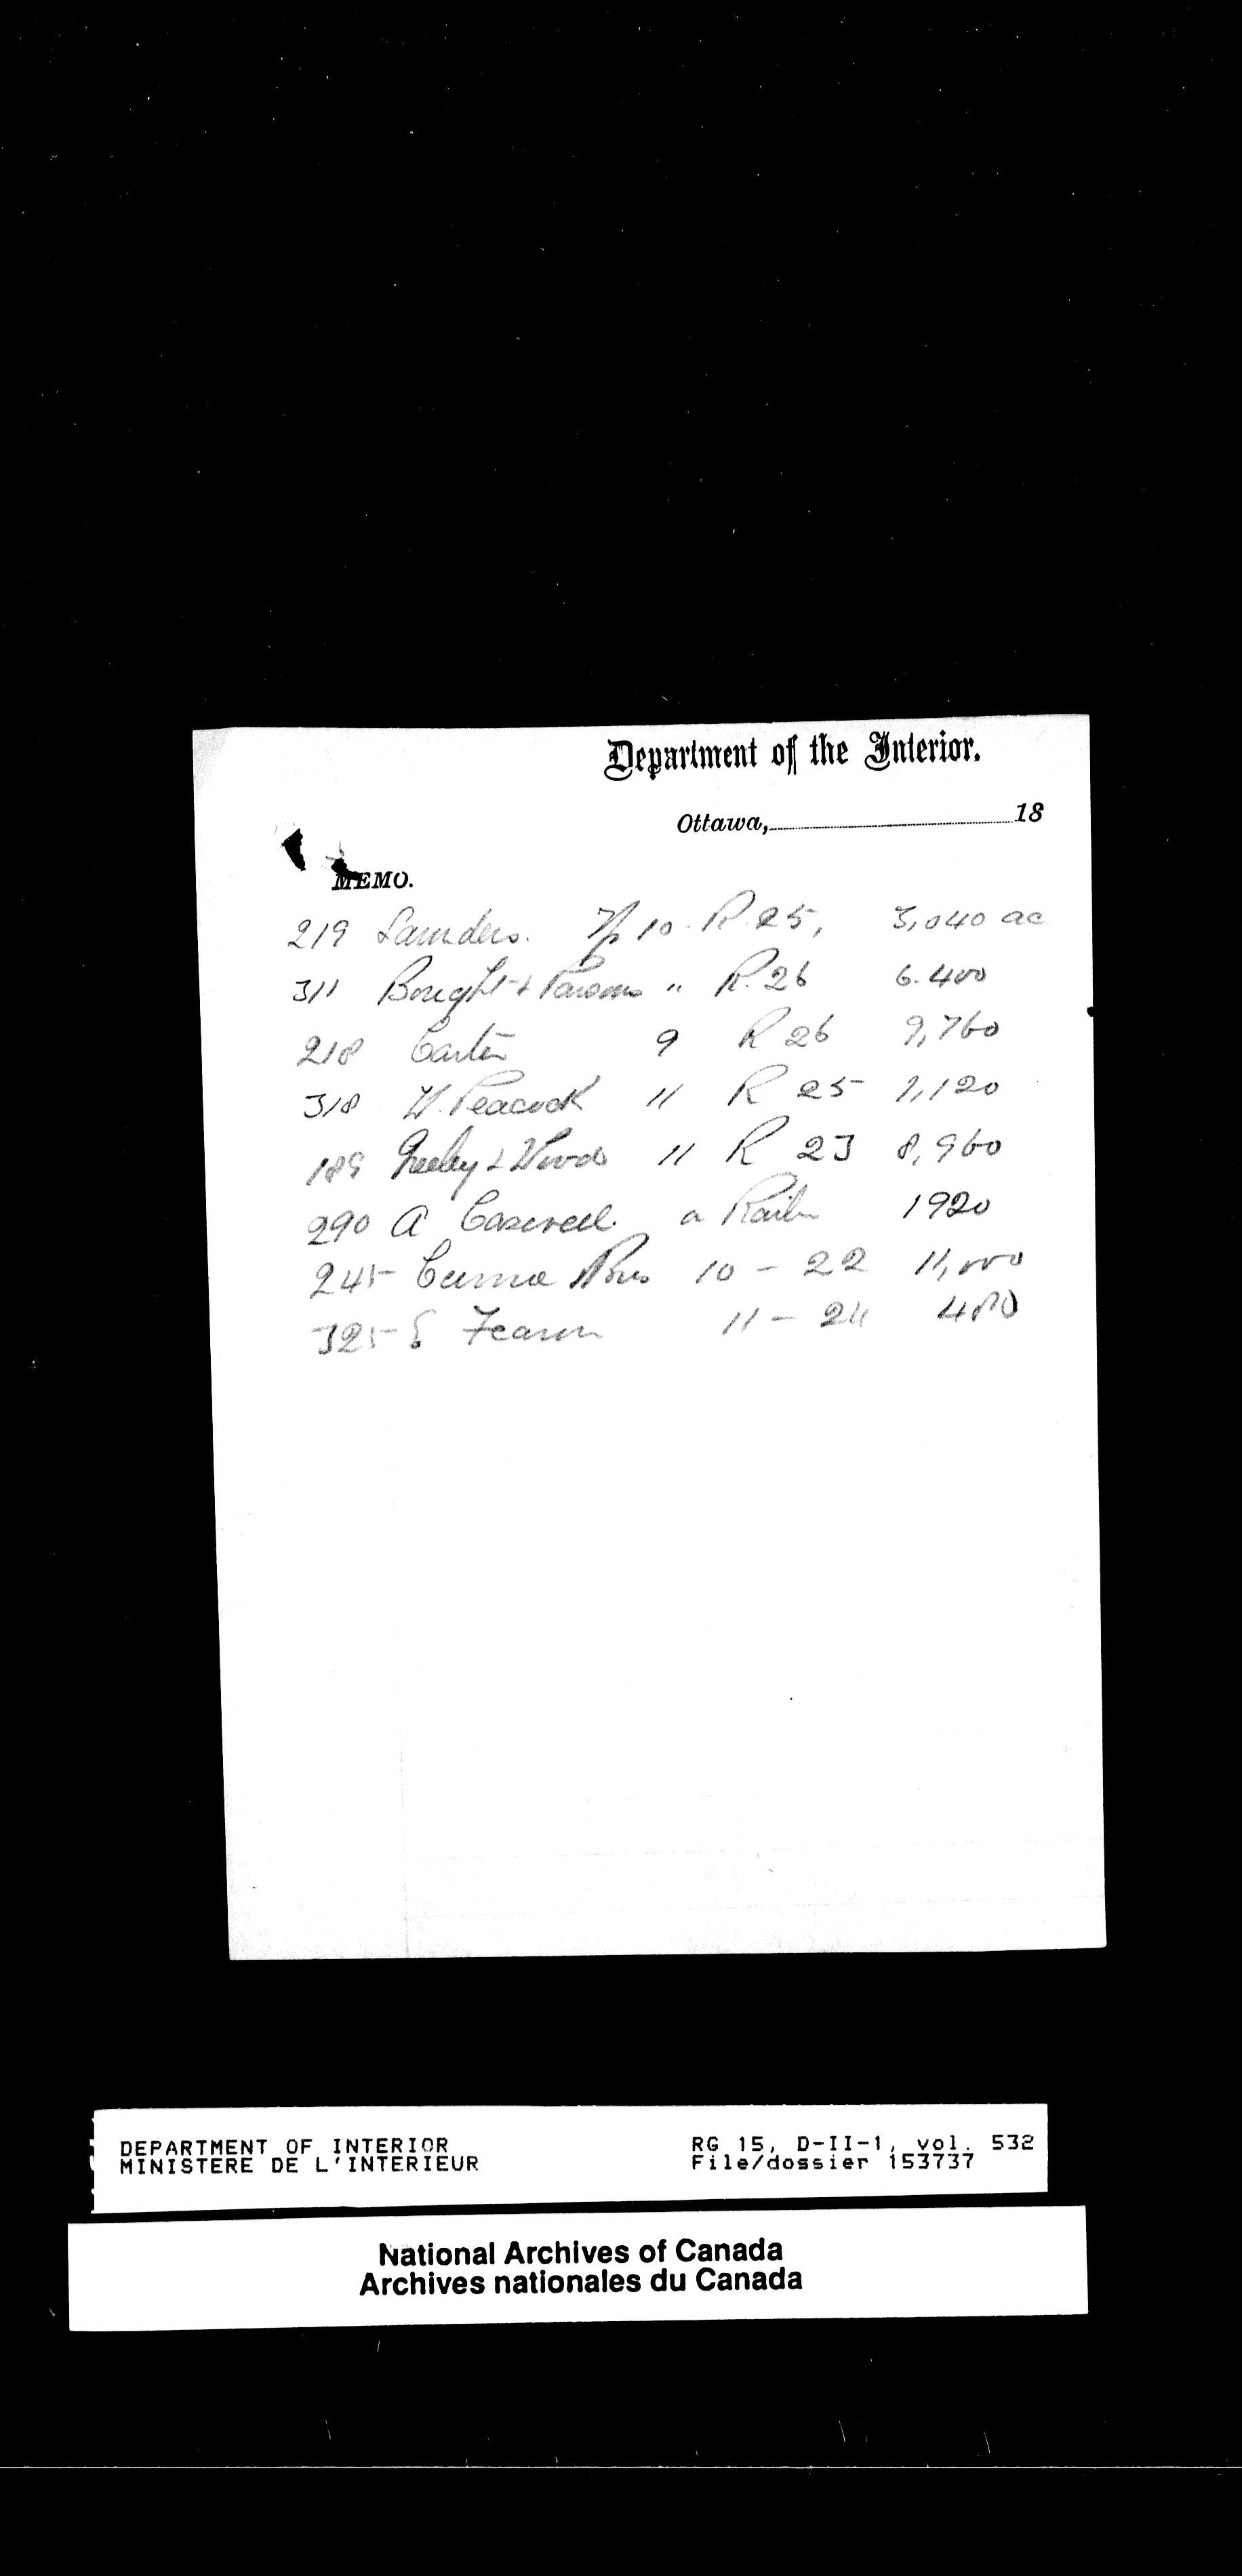 Department of the Interior.
Ottawa, 18
MEMO.
219 Saunders. Tp 10 R 25, 3,040 ac
311 Bought & Parsons " R. 26 6.400
218 Carter 9 R 26 9,760
318 W. Peacock 11 R 25 1,120
189 & Woods 11 R 23 8,960
290 A Caswell. a 1920
245 Bros 10 - 22 11,000
325 E Fearon 11 - 24 480
DEPARTMENT OF INTERIOR RG 15, D-II-1, vol. 532
MINISTERE DE L'INTERIEUR File/dossier 153737
National Archives of Canada
Archives nationales du Canada